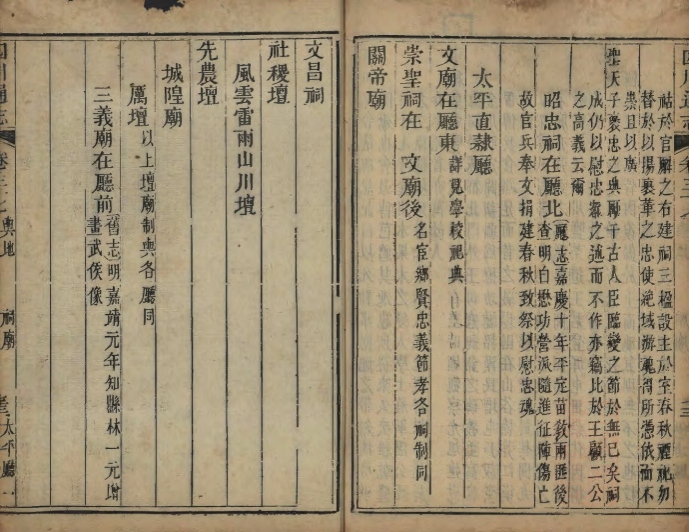 祜於官廨之右建祠三楹設主於室春秋禋祀勿
替於以揚襄華之忠使絶域游魂得所憑依而不
祟且以廣
聖天子褒忠之典厲千古人臣臨變之節於無已矣祠
成仍以慰忠寮之述而不作亦竊比於王顧二公
之高義云爾
昭忠祠在廳北廳志嘉慶十年平定苗敎兩匪後
查明白懋功營派隨進征陣傷亡
故官兵奉文捐建春秋致祭以慰忠魂
太平直隸廳
文廟在廳東詳見學校祀典
崇聖祠在 文廟後名宦鄉賢忠義節孝各祠制同
關帝廟
文昌祠
社稷壇
風雲雷雨山川壇
先農壇
城隍廟
厲壇以上壇廟制與各廳同
三義廟在廳前舊志明嘉靖元年知縣林一元增
畫武侯像
四川通志
卷三十七輿地 祠廟
太平廳一